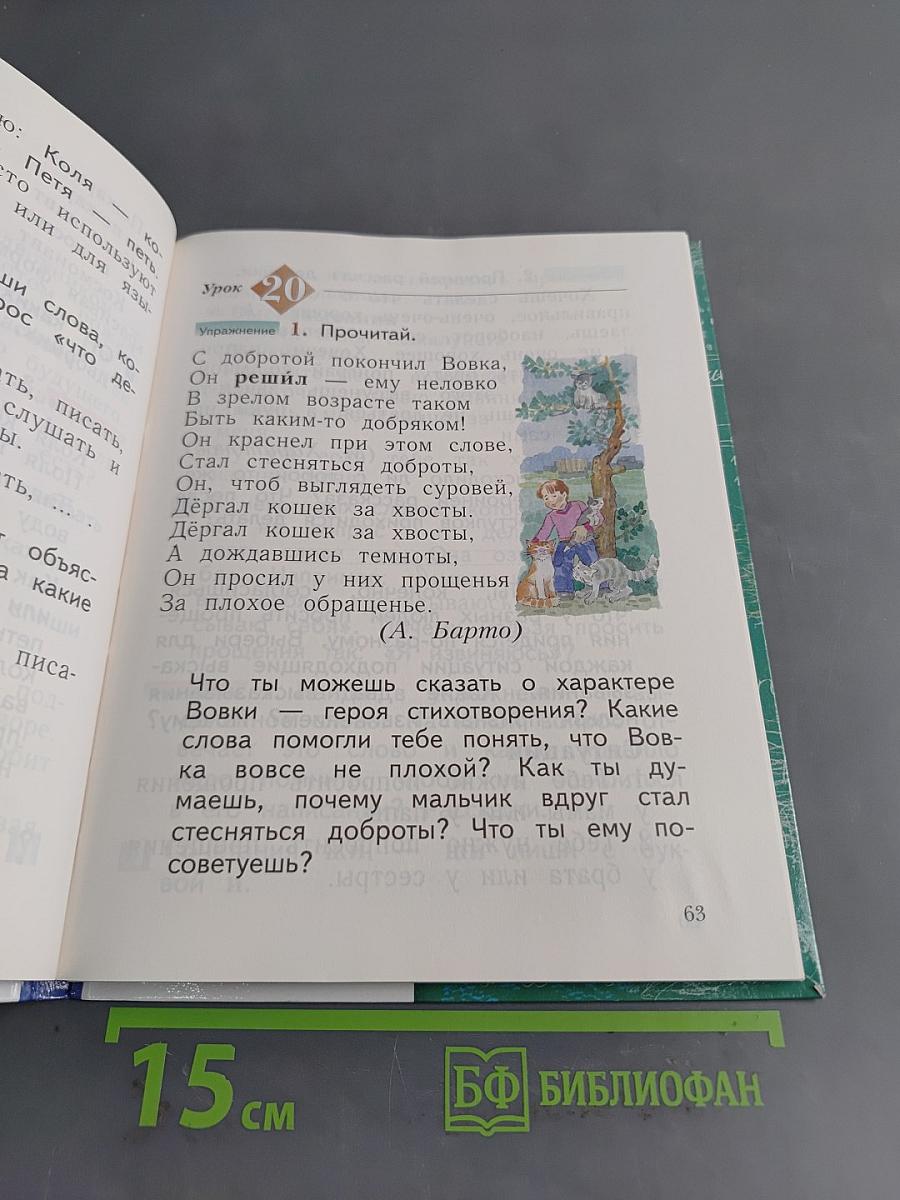 ю: Коля — ко-
Петя — петь.
сто используют
или для язы-
ши слова, ко-
рос «что де-
ать, писать,
слушать и
ы.
ать, ... .
т объяс-
а какие
писа-
Урок 20
Упражнение 1. Прочитай.
С добротой покончил Вовка,
Он реши́л — ему неловко
В зрелом возрасте таком
Быть каким-то добряком!
Он краснел при этом слове,
Стал стесняться доброты,
Он, чтоб выглядеть суровей,
Дёргал кошек за хвосты.
Дёргал кошек за хвосты,
А дождавшись темноты,
Он просил у них прощенья
За плохое обращенье.
(А. Барто)
Что ты можешь сказать о характере
Вовки — героя стихотворения? Какие
слова помогли тебе понять, что Вов-
ка вовсе не плохой? Как ты ду-
маешь, почему мальчик вдруг стал
стесняться доброты? Что ты ему по-
советуешь?
63
15 см
БФ БИБЛИОФАН